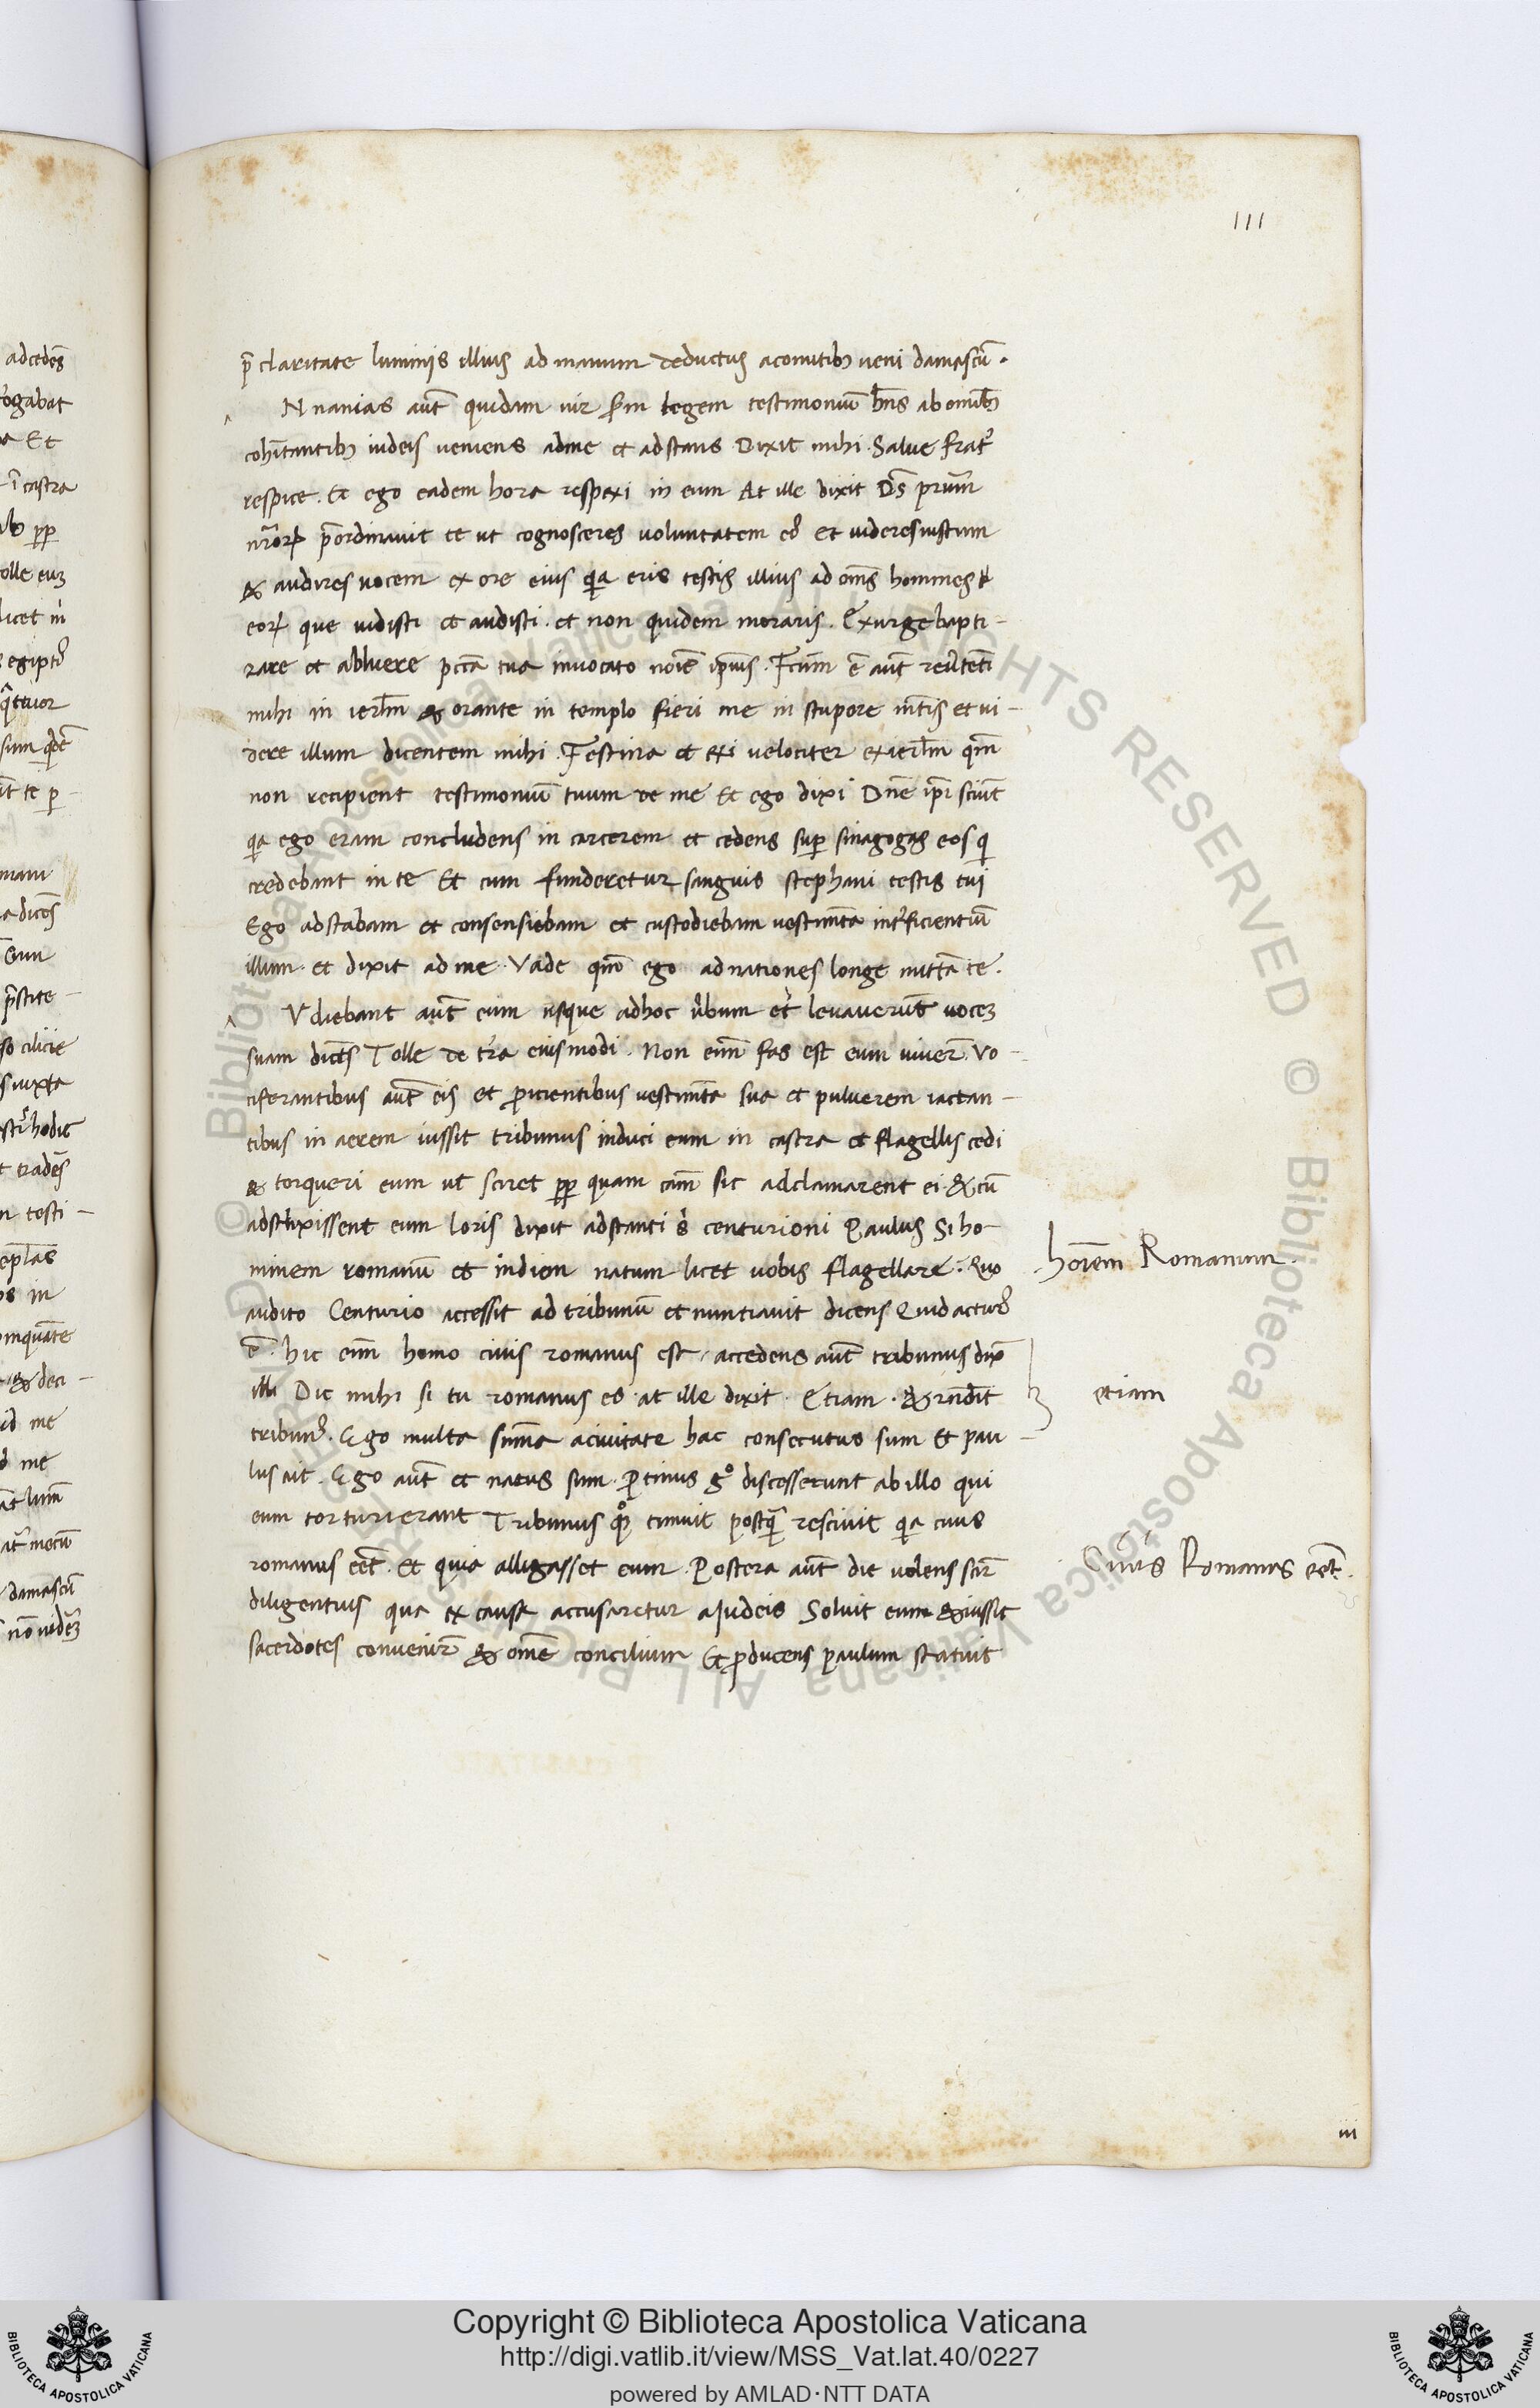 111
adcedēs
rogabat
a Et
ī castra
ꝓp
olle euꝫ
licet m̄
egipti᷒
quatuor
sum quidē
manu
a dicēs
ilicie
s iuxta
hodie
t tradēs
n testi-
os in
& deci-
id me
d me
mecū
damascū
nō vidēꝫ
p̄ claritate luminis illius ad manum deductus acomitibꝫ veni damascū.
Nnanias aūt quidam vir scḋm legem testimoniū hn̄s ab omibꝫ
cohītantibꝫ iudeis veniens adme et adstans Dixit mihi. Salve frat᷒
respice. Et ego eadem hora respexi in eum At ille dixit Ds̄ prūm
nr̄orꝝ p̄ordinavit te ut cognosceres voluntatem ei᷒ et videres iustum
& audires vocem ex ore eius qia eris testis illius ad om̄s homines
eorꝝ que vidisti et audisti. et non quidem moraris. Exurge bapti-
zare et abluere pctā tua invocato noīe ipius. Fcūm ē aūt revtētī
mihi in ierl̄m & orante in templo fieri me in stupore mtīs et vi-
dere illum dicentem mihi. Festina et exi velociter ex ierl̄m qm̄
non recipient testimoniū tuum de me Et ego dixi Dn̄e ipī sciūt
qia ego eram concludens in carcerem et cedens sup sinagogas eos q̇
credebant in te Et cum funderetur sanguis stephani testis tui
Ego adstabam et consensiebam et custodiebam vestimt̄a int᷒ficientiū
illum. et dixit ad me. Vade qm̄ ego ad nationes longe mittā te.
Udiebant aūt eum usque adhoc v̇bum et levaverūt voceꝫ
suam dicēs Tolle de tr̄a eiusmodi. Non enī fas est eum viver̄ Vo-
ciferantibus aūt eis et ꝓicientibus vestimt̄a sua et pulverem iactan-
tibus in aerem iussit tribunus induci eum in castra et flagellis cedi
& torqueri eum ut sciret ꝓp quam cām sic adclamarent ei. & cū
adstrixissent eum loris dixit adstanti s centurioni Paulus Si ho-
minem romanū et indem natum licet vobis flagellare. Quo
audito Centurio accessit ad tribunū et nuntiavit dicens Quid actur᷒
ē. hic enī homo civis romanus est. accedens aūt tribunus dix̄
illi Dic mihi si tu romanus es. at ille dixit. Etiam. & rn̄dit
tribun᷒. Ego multa sūma acivitate hac consecutus sum Et pau-
lus ait. Ego aūt et natus sum. Ptinus g° discesserunt ab illo qui
eum torturierant Tribunus q°q timuit postq̄ rescivit qia civis
romanus eēt. Et quia alligasset eum. Postera aūt die volens scir̄
diligentius qua ex causa accusaretur a Judeis Solvit eum & iussit
sacerdotes convenir̄ & omē concilium Et ꝓducens paulum statuit
hoīem Romanum.
etiam
Civis Romanus eēt.
iii
© Biblioteca Apostolica Vaticana ALL RIGHTS RESERVED
Copyright © Biblioteca Apostolica Vaticana
http://digi.vatlib.it/view/MSS_Vat.lat.40/0227
powered by AMLAD·NTT DATA
BIBLIOTECA APOSTOLICA VATICANA
BIBLIOTECA APOSTOLICA VATICANA